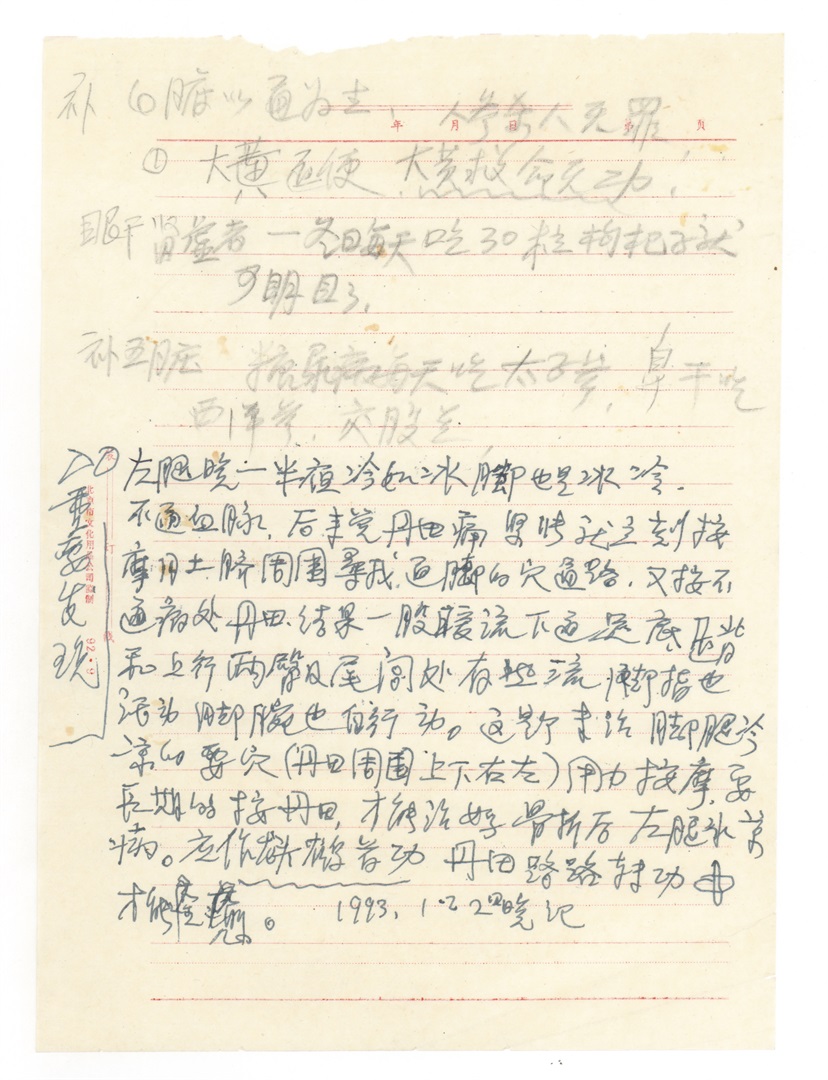 补 6腑以通为主， 人参杀人无罪
年 月 日 第 页
① 大黄通便 大黄救命无功！
眼干肾虚者 一冬日每天吃30粒枸杞子就
可明目了。
补五脏 糖尿病每天吃太子参，鼻干吃
西洋参，
重要发现
左腿晚一半夜冷如冰 脚也是冰冷．
不通血脉，后来觉丹田痛 紧张就立刻按
摩丹土脐周围 寻找 通脚的穴通路．又按不
通病处 丹田．结果一股暖流下通足底 足背
和上行两臀及尾闾处有些流 脚指也
活动 脚腕也自行动。这是来治脚腿冷
凉的要穴（丹田周围上下右左）用力按摩．要
长期的按丹田，才能治好骨折后左腿冰凉
病。应作 丹田路路转功
才能 。 1993．1 2 晚记
北京 文化用 制 92·9
装 订 线